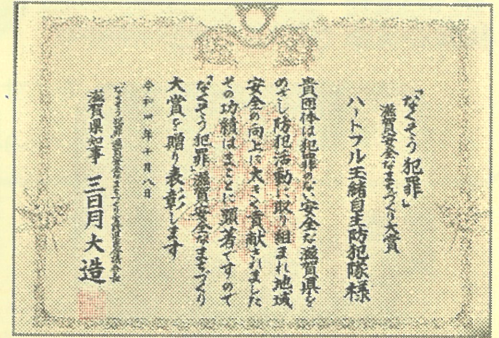 「なくそう犯罪」
滋賀安全なまちづくり大賞
ハートフル玉緒自主防犯隊様
貴団体は犯罪のない安全な滋賀県を
めざし防犯活動に取り組まれ地域
安全の向上に大きく貢献されました
その功績はまことに顕著ですので
「なくそう犯罪」滋賀安全なまちづくり
大賞を贈り表彰します
令和四年十月八日
「なくそう犯罪」滋賀安全なまちづくり実践県民会議会長
滋賀県知事 三日月大造